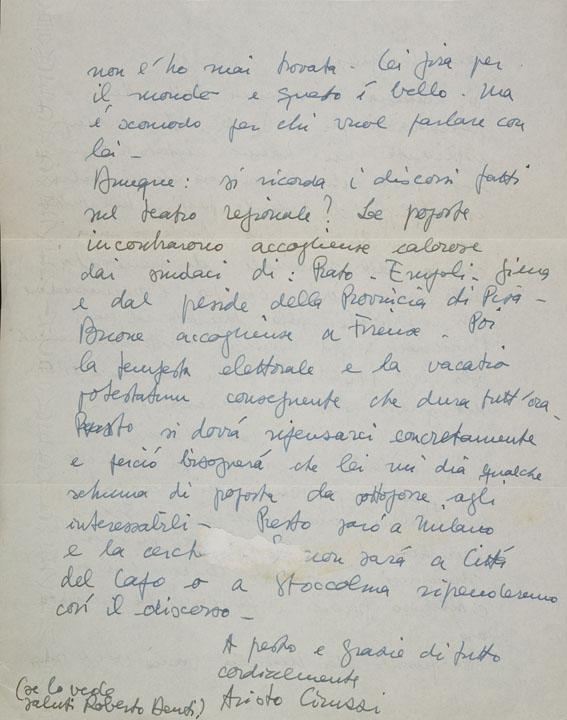 non l'ho mai trovata. Lei gira per
il mondo e questo è bello. Ma
è scomodo per chi vuol parlare con
lei -
Dunque: si ricorda i discorsi fatti
sul teatro regionale? Le proposte
incontrarono accoglienze calorose
dai sindaci di: Prato - Empoli - Siena
e dal preside della Provincia di Pisa -
Buone accoglienze a Firenze. Poi
la tempesta elettorale e la vacatio
potestatum conseguente che dura tutt'ora.
Presto si dovrà ripensarci concretamente
e perciò bisognerà che lei mi dia qualche
schema di proposta da sottoporre agli
interessabili - Presto sarò a Milano
e la cerch non sarà a Città
del Capo o a Stoccolma riprenderemo
così il discorso -
A presto e grazie di tutto
cordialmente
(se lo vede
saluti Roberto )